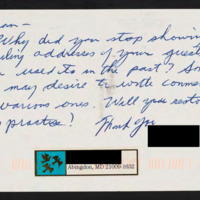 an-
Why did you stop showin
ling addresses of your gues
u used to in the past? So
may desire to write comme
various ones. Will you resto
practice?
Thank you
Abingdon, MD 21009-1652